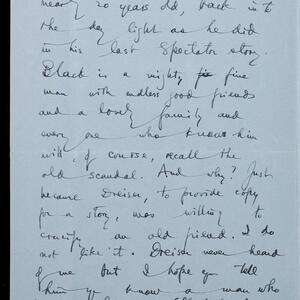 nearly 20 years old, back into
the day light as he did
in his last Spectator story.
Black is a mighty fine
man with endless good friends
and a lovely family and
every one who knows him
will, of course, recall the
old scandal. And why? Just
because Dreiser, to provide copy
for a story, was willing to
crucify an old friend. I do
not like it. Dreiser never heard
of me but I hope you tell
him you know a man who